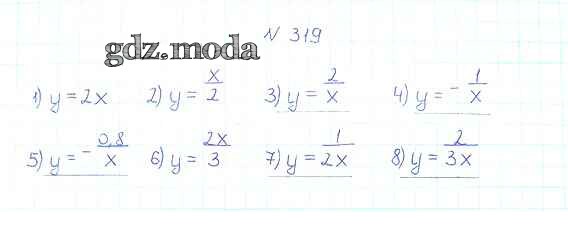 N 319
gdz.moda
1) y = 2x 2) y = x/2 3) y = 2/x 4) y = - 1/x
5) y = - 0,8/x 6) y = 2x/3 7) y = 1/2x 8) y = 2/3x